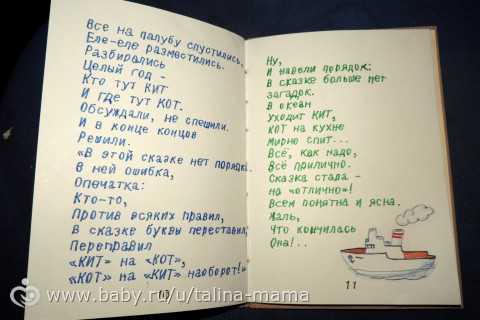 Все на палубу спустились,
Еле-еле разместились.
Разбирались
Целый год -
Кто тут КИТ
И где тут КОТ.
Обсуждали, не спешили.
И в конце концов
Решили.
«В этой сказке нет порядка.
В ней ошибка,
Опечатка:
Кто-то,
Против всяких правил,
В сказке буквы переставил,
Переправил
«КИТ» на «КОТ»,
«КОТ» на «КИТ» наоборот!»
10
Ну,
И навели порядок:
В сказке больше нет
загадок.
В океан
Уходит КИТ,
КОТ на кухне
Мирно спит...
Всё, как надо,
Всё прилично.
Сказка стала -
на «отлично»!
Всем понятна и ясна.
Жаль,
Что кончилась
Она!..
11
www.baby.ru/u/talina-mama